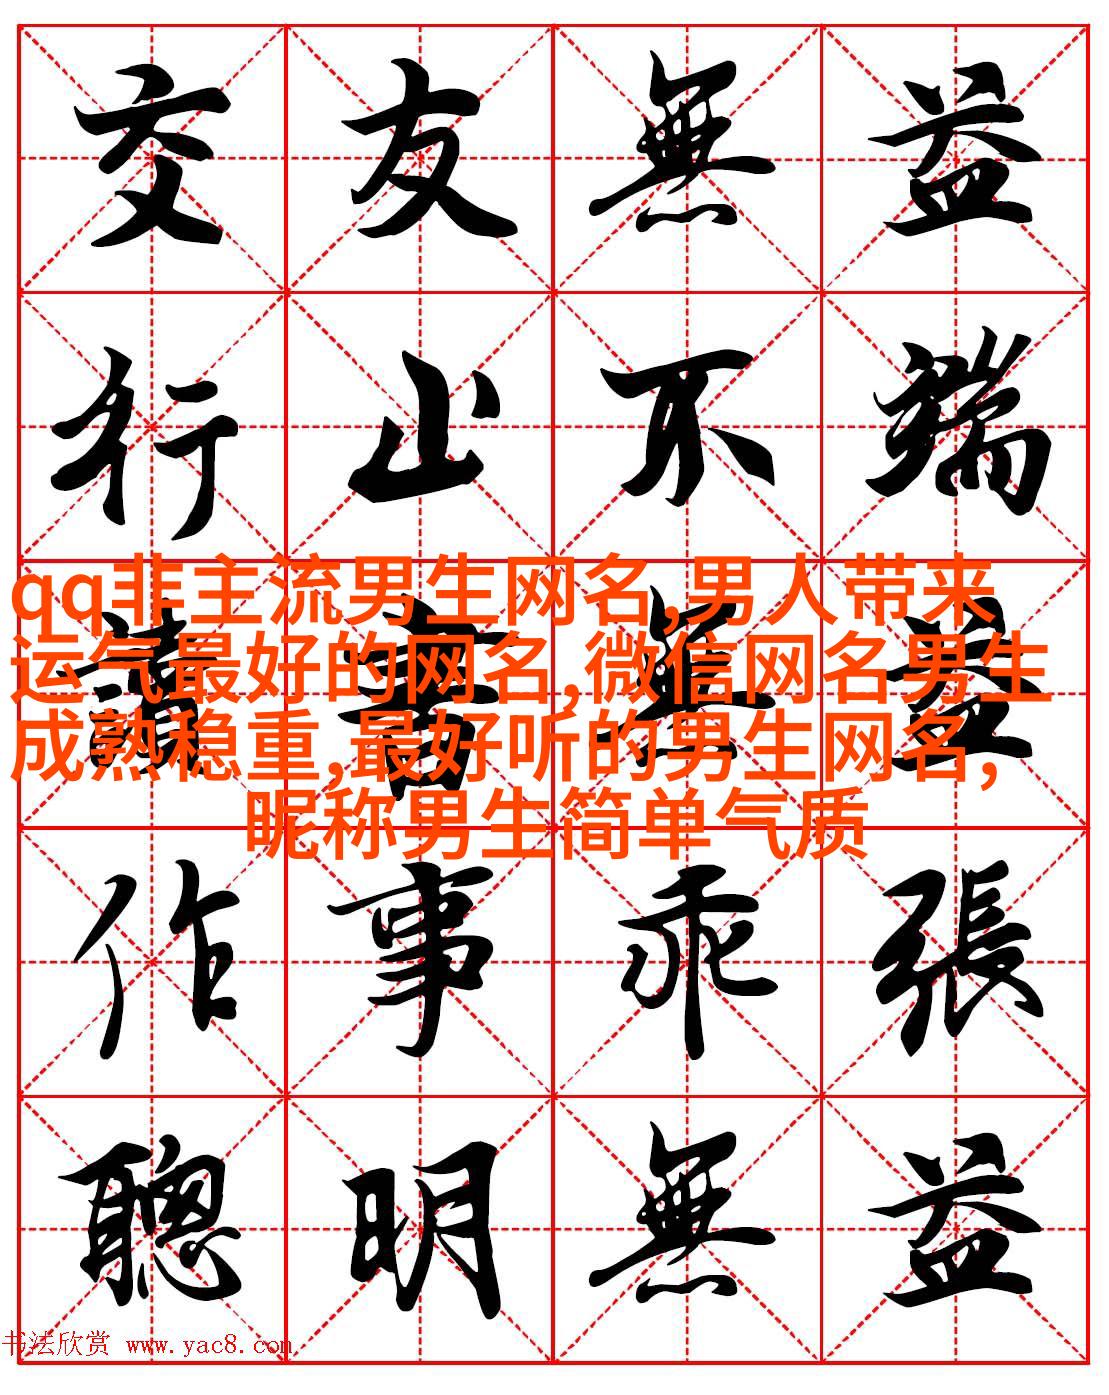 交友無益
行止不端
讀書無益
作事乖張
聰明無益
qq非主流男生网名,男人带来
运气最好的网名,微信网名男生
成熟稳重,最好听的男生网名,
昵称男生简单气质
书法欣赏 www.yac8.com